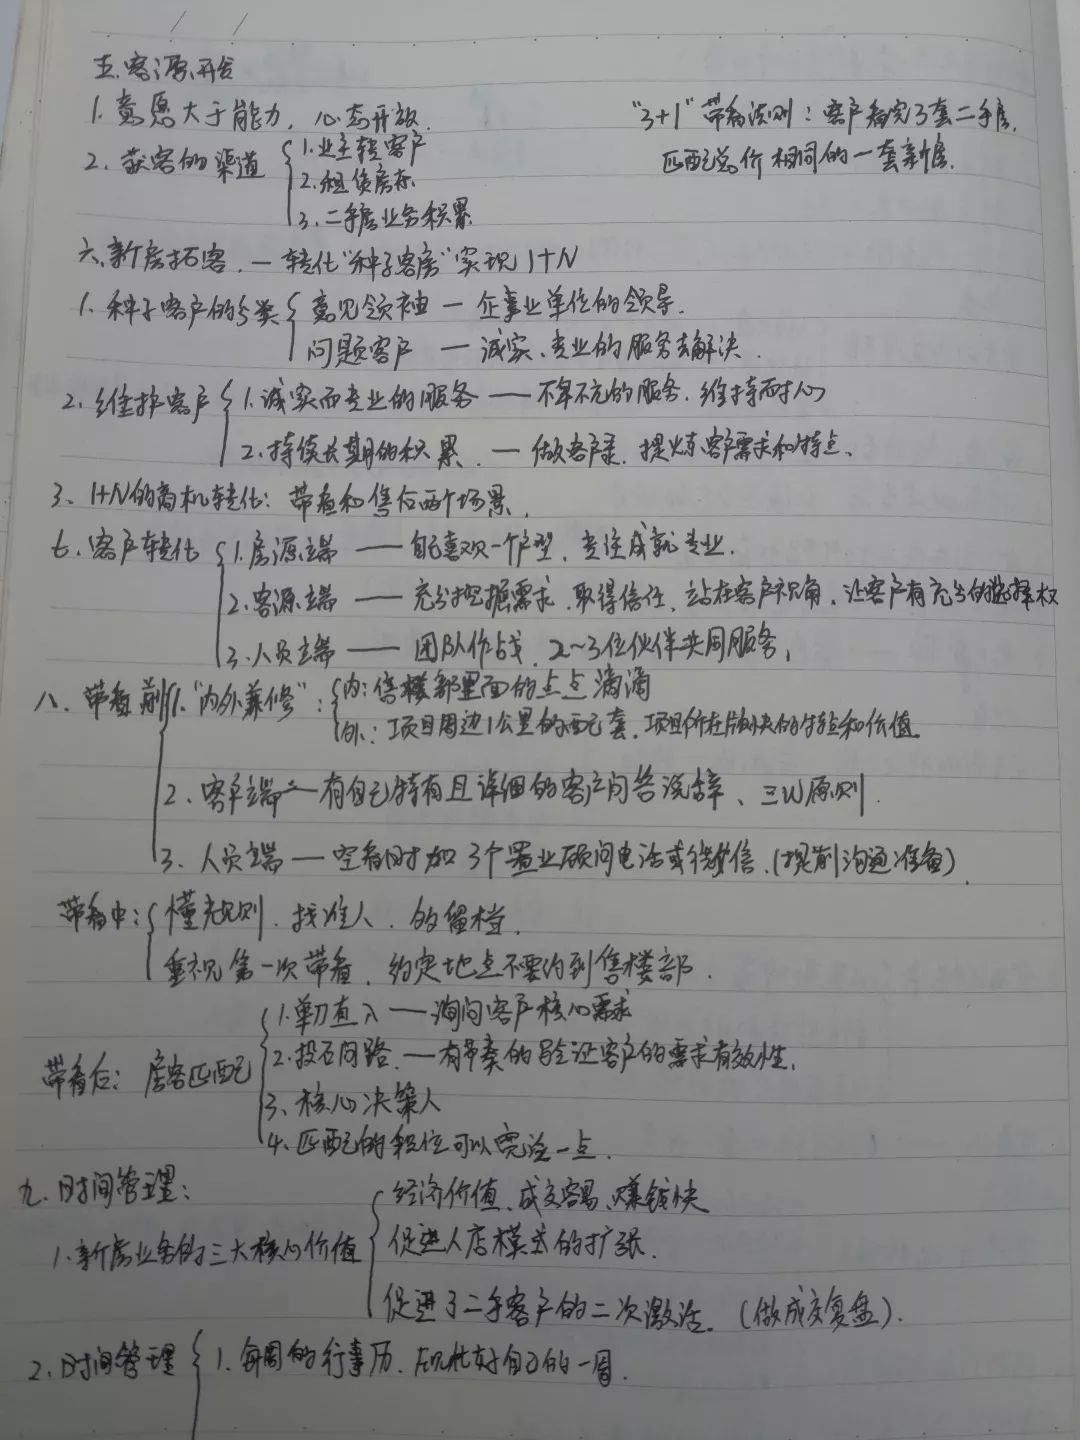 五.客源开发
1.意愿大于能力，心态开放.
"3+1"带看法则：客户看完3套二手房，
匹配总价相同的一套新房.
2.获客的渠道
1.业主转客户
2.租赁房东
3.二手房业务积累
六.新房拓客.—转化"种子客房"实现1+N
1.种子客户的分类
意见领袖—企事业单位的领导.
问题客户—诚实、专业的服务去解决.
2.维护客户
1.诚实而专业的服务——不卑不亢的服务.维持耐心
2.持续长期的积累.—做客户.提炼客户需求和特点、
3、1+N的商机转化：带看和售后两个场景.
七.客户转化
1.房源端——自己喜欢一个户型，专注成就专业.
2.客源端——充分挖掘需求.取得信任.站在客户视角.让客户有充分的选择权
3.人员端——团队作战.2~3位伙伴共同服务,
八、带看前
1."内外兼修"：
内：售楼部里面的点点滴滴
外：项目周边1公里的配套.项目所在版块的价值.
2、客户端—有自己特有且详细的客户问答说辞、三W原则.
3、人员端—空看时加3个置业顾问电话或微信.(提前沟通准备).
带看中：
懂规则.找准人.的留档.
重视第一次带看.约定地点不要约到售楼部.
带看后：房客匹配
1.单刀直入——询问客户核心需求
2.投石问路.—有带卖的验证客户的需求有效性.
3、核心决策人
4、匹配的积位可以一点.
九.时间管理：
1.新房业务的三大核心价值
经济价值.成交容易、赚钱快
促进人店模式的扩张.
促进了二手客户的二次激活.(做成交复盘).
2.时间管理
1.每周的行事历.优化好自己的一周.